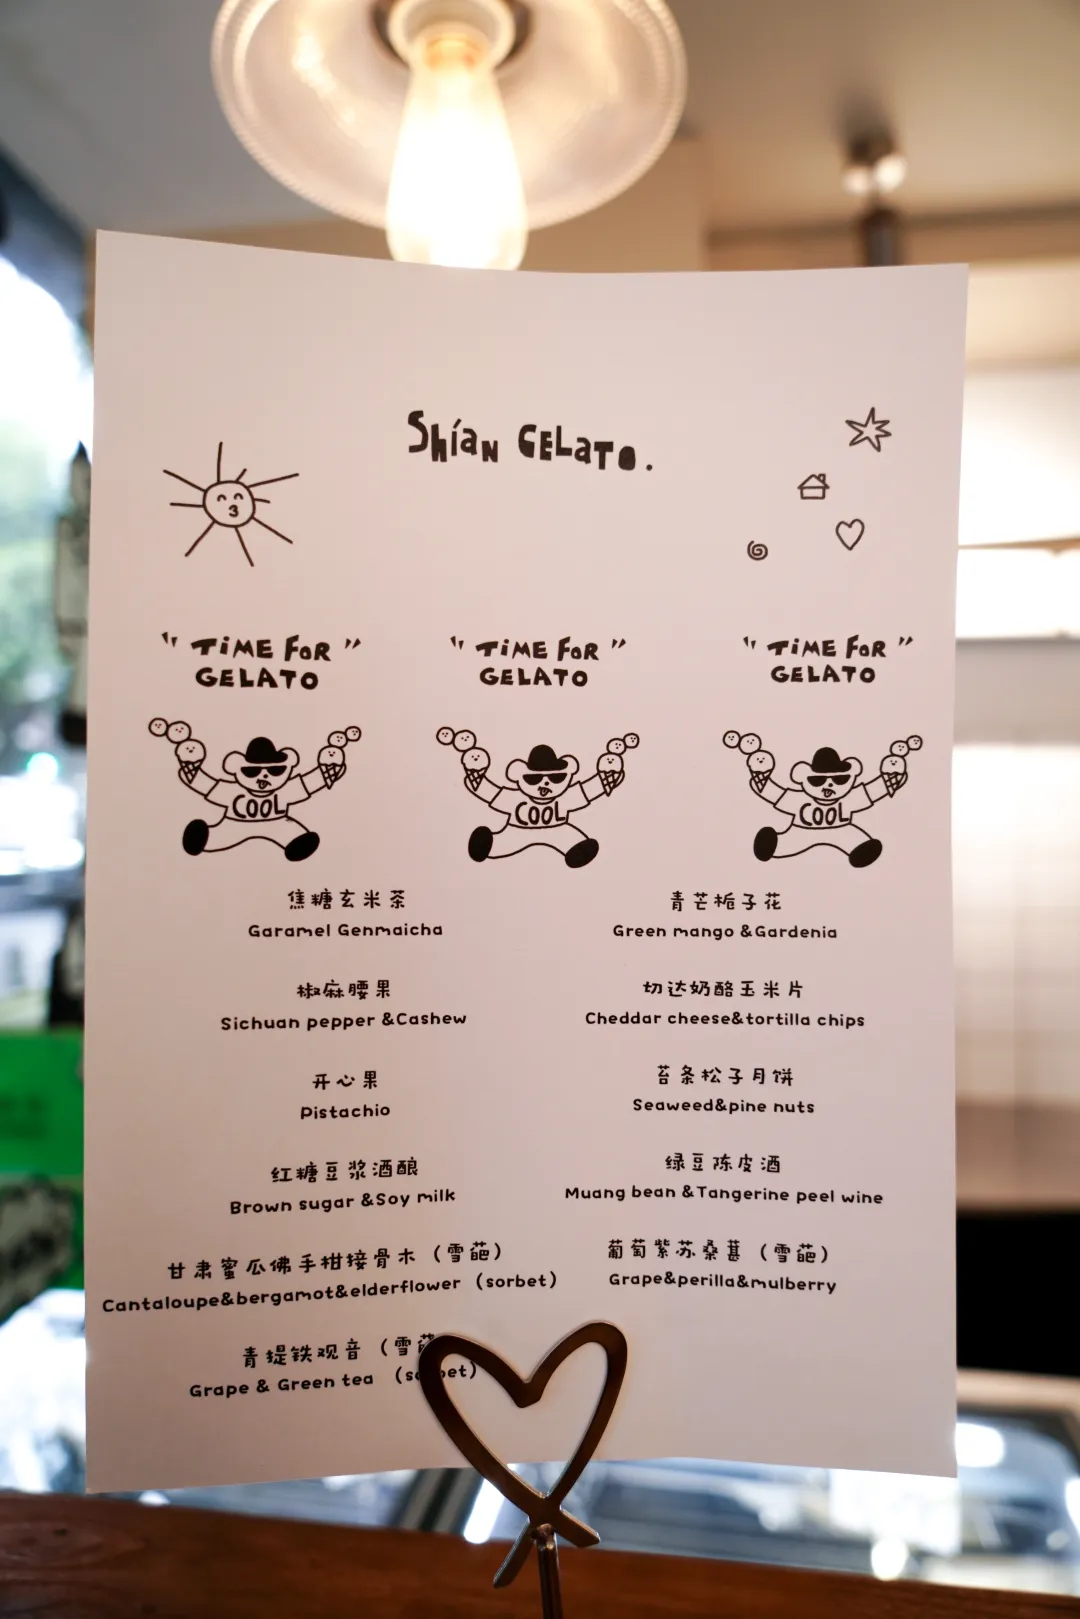 Shían GELATO.
"TiME FOR"
GELATO
"TiME FOR"
GELATO
"TiME FOR"
GELATO
COOL
COOL
COOL
焦糖玄米茶
Garamel Genmaicha
椒麻腰果
Sichuan pepper &Cashew
开心果
Pistachio
红糖豆浆酒酿
Brown sugar &Soy milk
甘肃蜜瓜佛手柑接骨木（雪葩）
Cantaloupe&bergamot&elderflower（sorbet）
青提铁观音（雪
Grape & Green tea
青芒栀子花
Green mango &Gardenia
切达奶酪玉米片
Cheddar cheese&tortilla chips
苔条松子月饼
Seaweed&pine nuts
绿豆陈皮酒
Muang bean &Tangerine peel wine
葡萄紫苏桑葚（雪葩）
Grape&perilla&mulberry